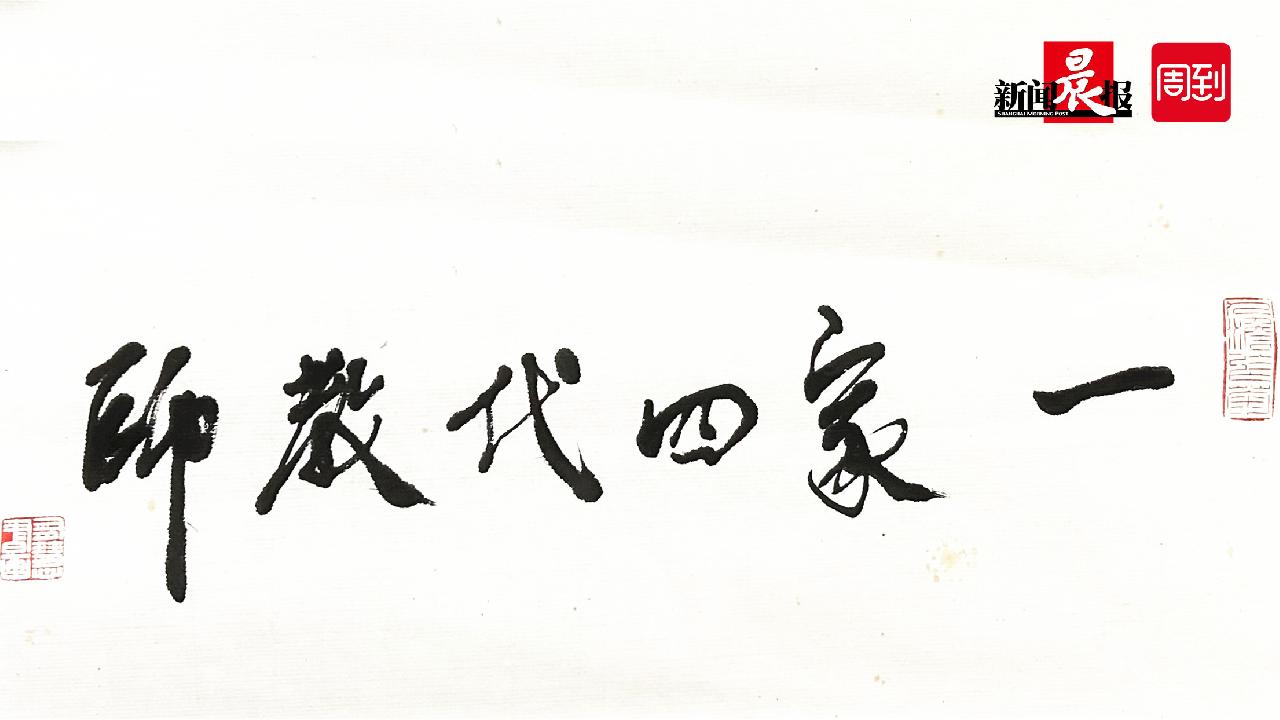 新闻晨报
SHANGHAI MORNING POST
周到
一家四代教師